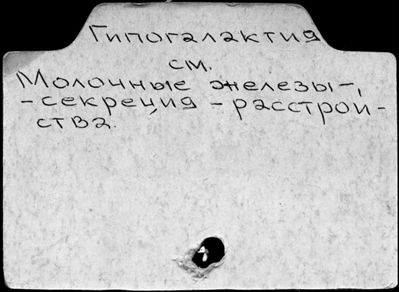 Гипогалактия
см.
Молочные железы-,
-секреция - расстрой-
ства.